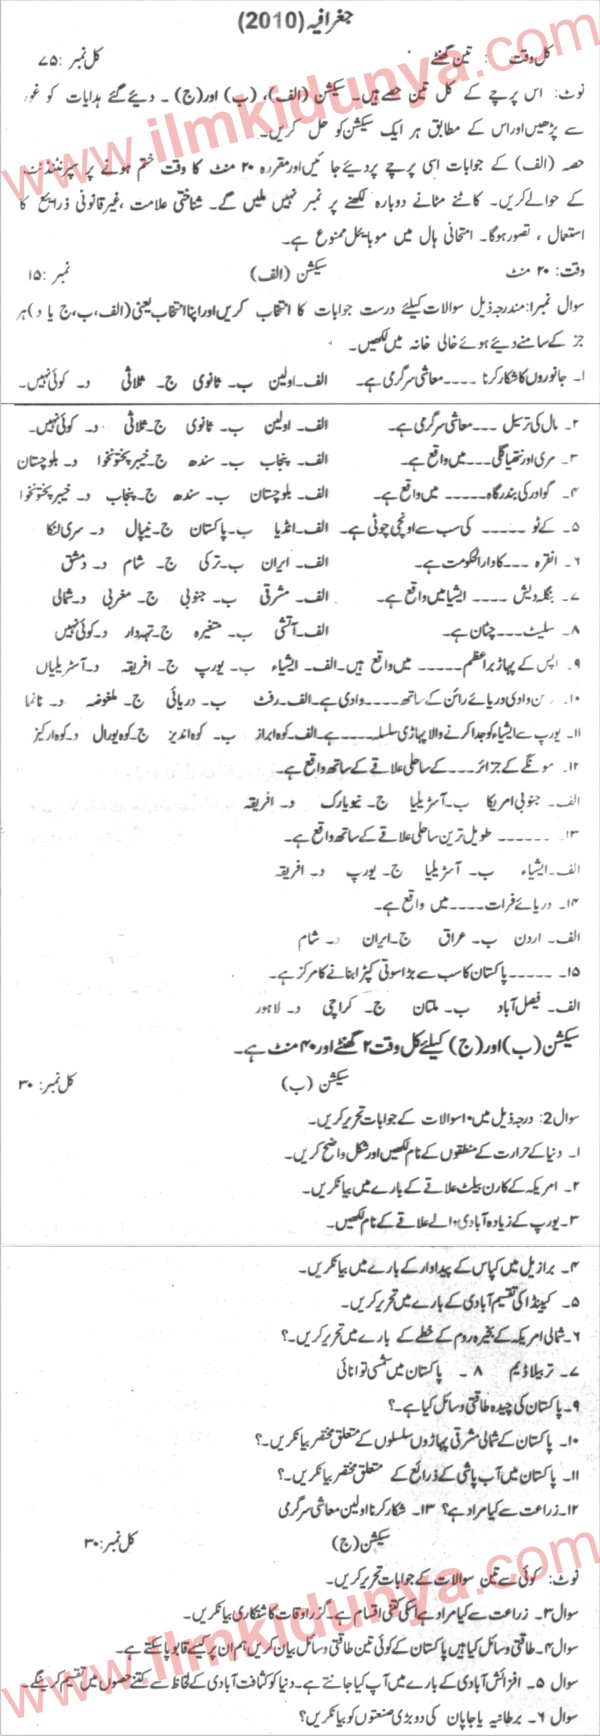 جغرافیہ (2010)
کل وقت : تین گھنٹے کل نمبر: ۷۵
نوٹ: اس پرچے کے کل تین حصے ہیں۔ سیکشن (الف)، (ب) اور (ج) ۔ دیئے گئے ہدایات کو غور
سے پڑھیں اور اس کے مطابق ہر ایک سیکشن کو حل کریں۔
حصہ (الف) کے جوابات اسی پرچے پر دیئے جائیں اور مقررہ ۲۰ منٹ کا وقت ختم ہونے پر سپرنٹنڈنٹ
کے حوالے کریں۔ کاٹنے مٹانے دوبارہ لکھنے پر نمبر نہیں ملیں گے۔ شناختی علامت، غیر قانونی ذرائع کا
استعمال ، تصور ہوگا۔ امتحانی ہال میں موبائل ممنوع ہے۔
وقت: ۲۰ منٹ سیکشن (الف) نمبر: ۱۵
سوال نمبر۱: مندرجہ ذیل سوالات کیلئے درست جوابات کا انتخاب کریں اور اپنا انتخاب یعنی (الف، ب، ج یا د) ہر
جز کے سامنے دیئے ہوئے خالی خانہ میں لکھیں۔
۱۔ جانوروں کا شکار کرنا ۔۔۔۔ معاشی سرگرمی ہے۔ الف۔ اولین ب۔ ثانوی ج۔ ثلاثی د۔ کوئی نہیں۔
۲۔ مال کی ترسیل ۔۔۔ معاشی سرگرمی ہے۔ الف۔ اولین ب۔ ثانوی ج۔ ثلاثی د۔ کوئی نہیں۔
۳۔ مری اور نتھیا گلی ۔۔۔ میں واقع ہے۔ الف۔ پنجاب ب۔ سندھ ج۔ خیبر پختونخوا د۔ بلوچستان
۴۔ گوادر کی بندرگاہ ۔۔۔۔۔ میں واقع ہے۔ الف۔ بلوچستان ب۔ سندھ ج۔ پنجاب د۔ خیبر پختونخوا
۵۔ کے ٹو ۔۔۔۔۔ کی سب سے اونچی چوٹی ہے۔ الف۔ انڈیا ب۔ پاکستان ج۔ نیپال د۔ سری لنکا
۶۔ انقرہ ۔۔۔ کا دارالحکومت ہے۔ الف۔ ایران ب۔ ترکی ج۔ شام د۔ دمشق
۷۔ بنگلہ دیش ۔۔۔۔ ایشیا میں واقع ہے۔ الف۔ مشرقی ب۔ جنوبی ج۔ مغربی د۔ شمالی
۸۔ سلیٹ ۔۔۔ چٹان ہے۔ الف۔ آتشی ب۔ متغیرہ ج۔ تہہ دار د۔ کوئی نہیں
۹۔ اپس کے پہاڑ براعظم ۔۔۔۔۔ میں واقع ہیں۔ الف۔ ایشیاء ب۔ یورپ ج۔ افریقہ د۔ آسٹریلیاں
۱۰۔ وادی دریائے رائن کے ساتھ ۔۔۔۔ وادی ہے۔ الف۔ رفٹ ب۔ دریائی ج۔ ملفوضہ د۔
۱۱۔ یورپ سے ایشیاء کو جدا کرنے والا پہاڑی سلسلہ ۔۔۔۔ ہے۔ الف۔ کوہ ابراز ب۔ کوہ اندیز ج۔ کوہ یورال د۔ کوہ ارکیز
۱۲۔ مونگے کے جزائر ۔۔۔ کے ساحلی علاقے کے ساتھ واقع ہے۔
الف۔ جنوبی امریکا ب۔ آسٹریلیا ج۔ نیویارک د۔ افریقہ
۱۳۔ ۔۔۔۔۔۔ طویل ترین ساحلی علاقے کے ساتھ واقع ہے۔
الف۔ ایشیاء ب۔ آسٹریلیا ج۔ یورپ د۔ افریقہ
۱۴۔ دریائے فرات ۔۔۔۔ میں واقع ہے۔
الف۔ اردن ب۔ عراق ج۔ ایران د۔ شام
۱۵۔ ۔۔۔۔۔ پاکستان کا سب سے بڑا سوتی کپڑا بنانے کا مرکز ہے۔
الف۔ فیصل آباد ب۔ ملتان ج۔ کراچی د۔ لاہور
سیکشن (ب) اور (ج) کیلئے کل وقت ۲ گھنٹے اور ۴۰ منٹ ہے۔
سیکشن (ب) کل نمبر: ۳۰
سوال 2: درجہ ذیل میں ۱۰ سوالات کے جوابات تحریر کریں۔
۱۔ دنیا کے حرارت کے منطقوں کے نام لکھیں اور شکل واضح کریں۔
۲۔ امریکہ کے کارن بیلٹ علاقے کے بارے میں بیان کریں۔
۳۔ یورپ کے زیادہ آبادی والے علاقے کے نام لکھیں۔
۴۔ برازیل میں کپاس کے پیداوار کے بارے میں بیان کریں۔
۵۔ کینیڈا کی تقسیم آبادی کے بارے میں تحریر کریں۔
۶۔ شمالی امریکہ کے بحیرہ روم کے خطے کے بارے میں تحریر کریں۔؟
۷۔ تربیلا ڈیم ۸۔ پاکستان میں شمسی توانائی
۹۔ پاکستان کی چیدہ طاقتی وسائل کیا ہے۔؟
۱۰۔ پاکستان کے شمالی مشرقی پہاڑوں سلسلوں کے متعلق مختصر بیان کریں۔؟
۱۱۔ پاکستان میں آب پاشی کے ذرائع کے متعلق مختصر بیان کریں۔؟
۱۲۔ زراعت سے کیا مراد ہے؟ ۱۳۔ شکار کرنا اولین معاشی سرگرمی
سیکشن (ج) کل نمبر: ۳۰
نوٹ: کوئی سے تین سوالات کے جوابات تحریر کریں۔
سوال ۳۔ زراعت سے کیا مراد ہے اسکی کتنی اقسام ہے۔ گزر اوقات کاشتکاری بیان کریں۔
سوال ۴۔ طاقتی وسائل کیا ہیں پاکستان کے کوئی تین طاقتی وسائل بیان کریں ہم ان پر کیسے قابو پا سکتے ہے۔
سوال ۵۔ افزائش آبادی کے بارے میں آپ کیا جانتے ہے۔ دنیا کو کثافت آبادی کے لحاظ سے کتنے حصوں میں تقسیم کرینگے۔
سوال ۶۔ برطانیہ یا جاپان کی دو بڑی صنعتوں کو بیان کریں۔
www.ilmkidunya.com
www.ilmkidunya.com